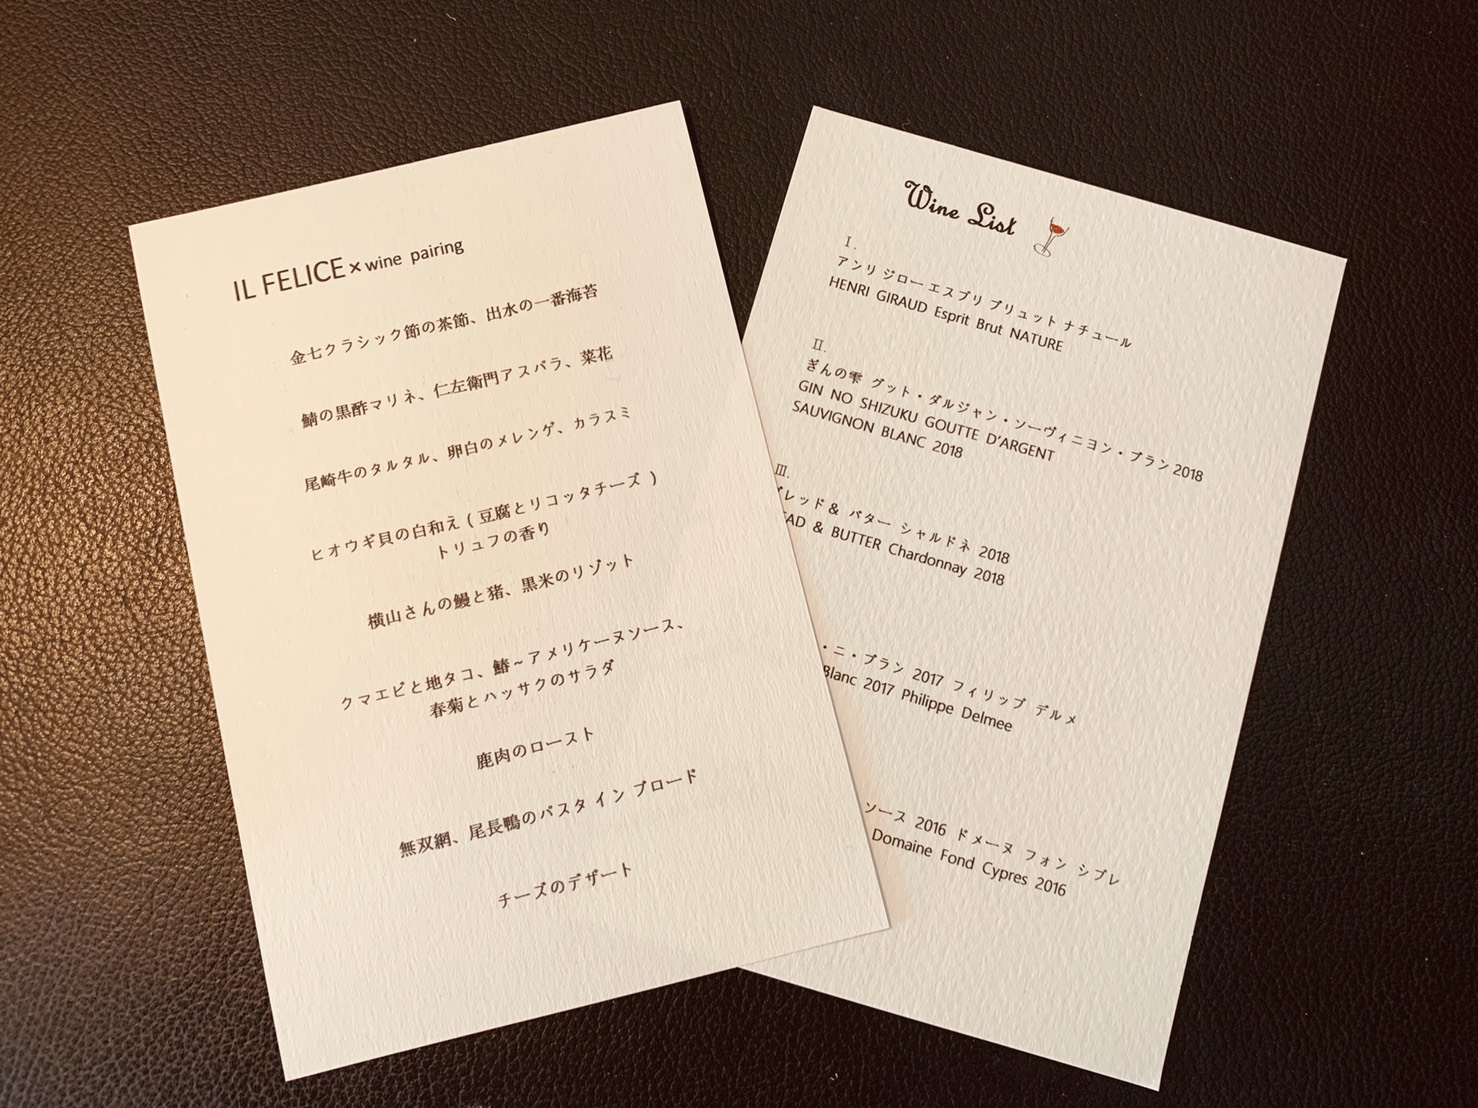 IL FELICE×wine pairing
金七クラシック節の茶節、出水の一番海苔
鯖の黒酢マリネ、仁左衛門アスパラ、菜花
尾崎牛のタルタル、卵白のメレンゲ、カラスミ
ヒオウギ貝の白和え ( 豆腐とリコッタチーズ )
トリュフの香り
横山さんの鰻と猪、黒米のリゾット
クマエビと地タコ、鰆~アメリケーヌソース、
春菊とハッサクのサラダ
鹿肉のロースト
無双網、尾長鴨のパスタ イン ブロード
チーズのデザート
Wine List
Ⅰ.
アンリ ジロー エスプリ ブリュット ナチュール
HENRI GIRAUD Esprit Brut NATURE
Ⅱ.
ぎんの雫 グット・ダルジャン・ソーヴィニヨン・ブラン2018
GIN NO SHIZUKU GOUTTE D'ARGENT
SAUVIGNON BLANC 2018
Ⅲ.
レッド & バター シャルドネ 2018
EAD & BUTTER Chardonnay 2018
・ニ・ブラン 2017 フィリップ デルメ
Blanc 2017 Philippe Delmee
ソース 2016 ドメーヌ フォン シプレ
Domaine Fond Cypres 2016